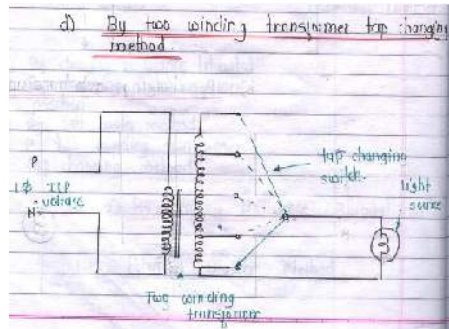 d) By two winding transformer tap changing
method.
P
1ϕ I/P
voltage
N
tap changing
switch.
light
source
Two winding
transformer